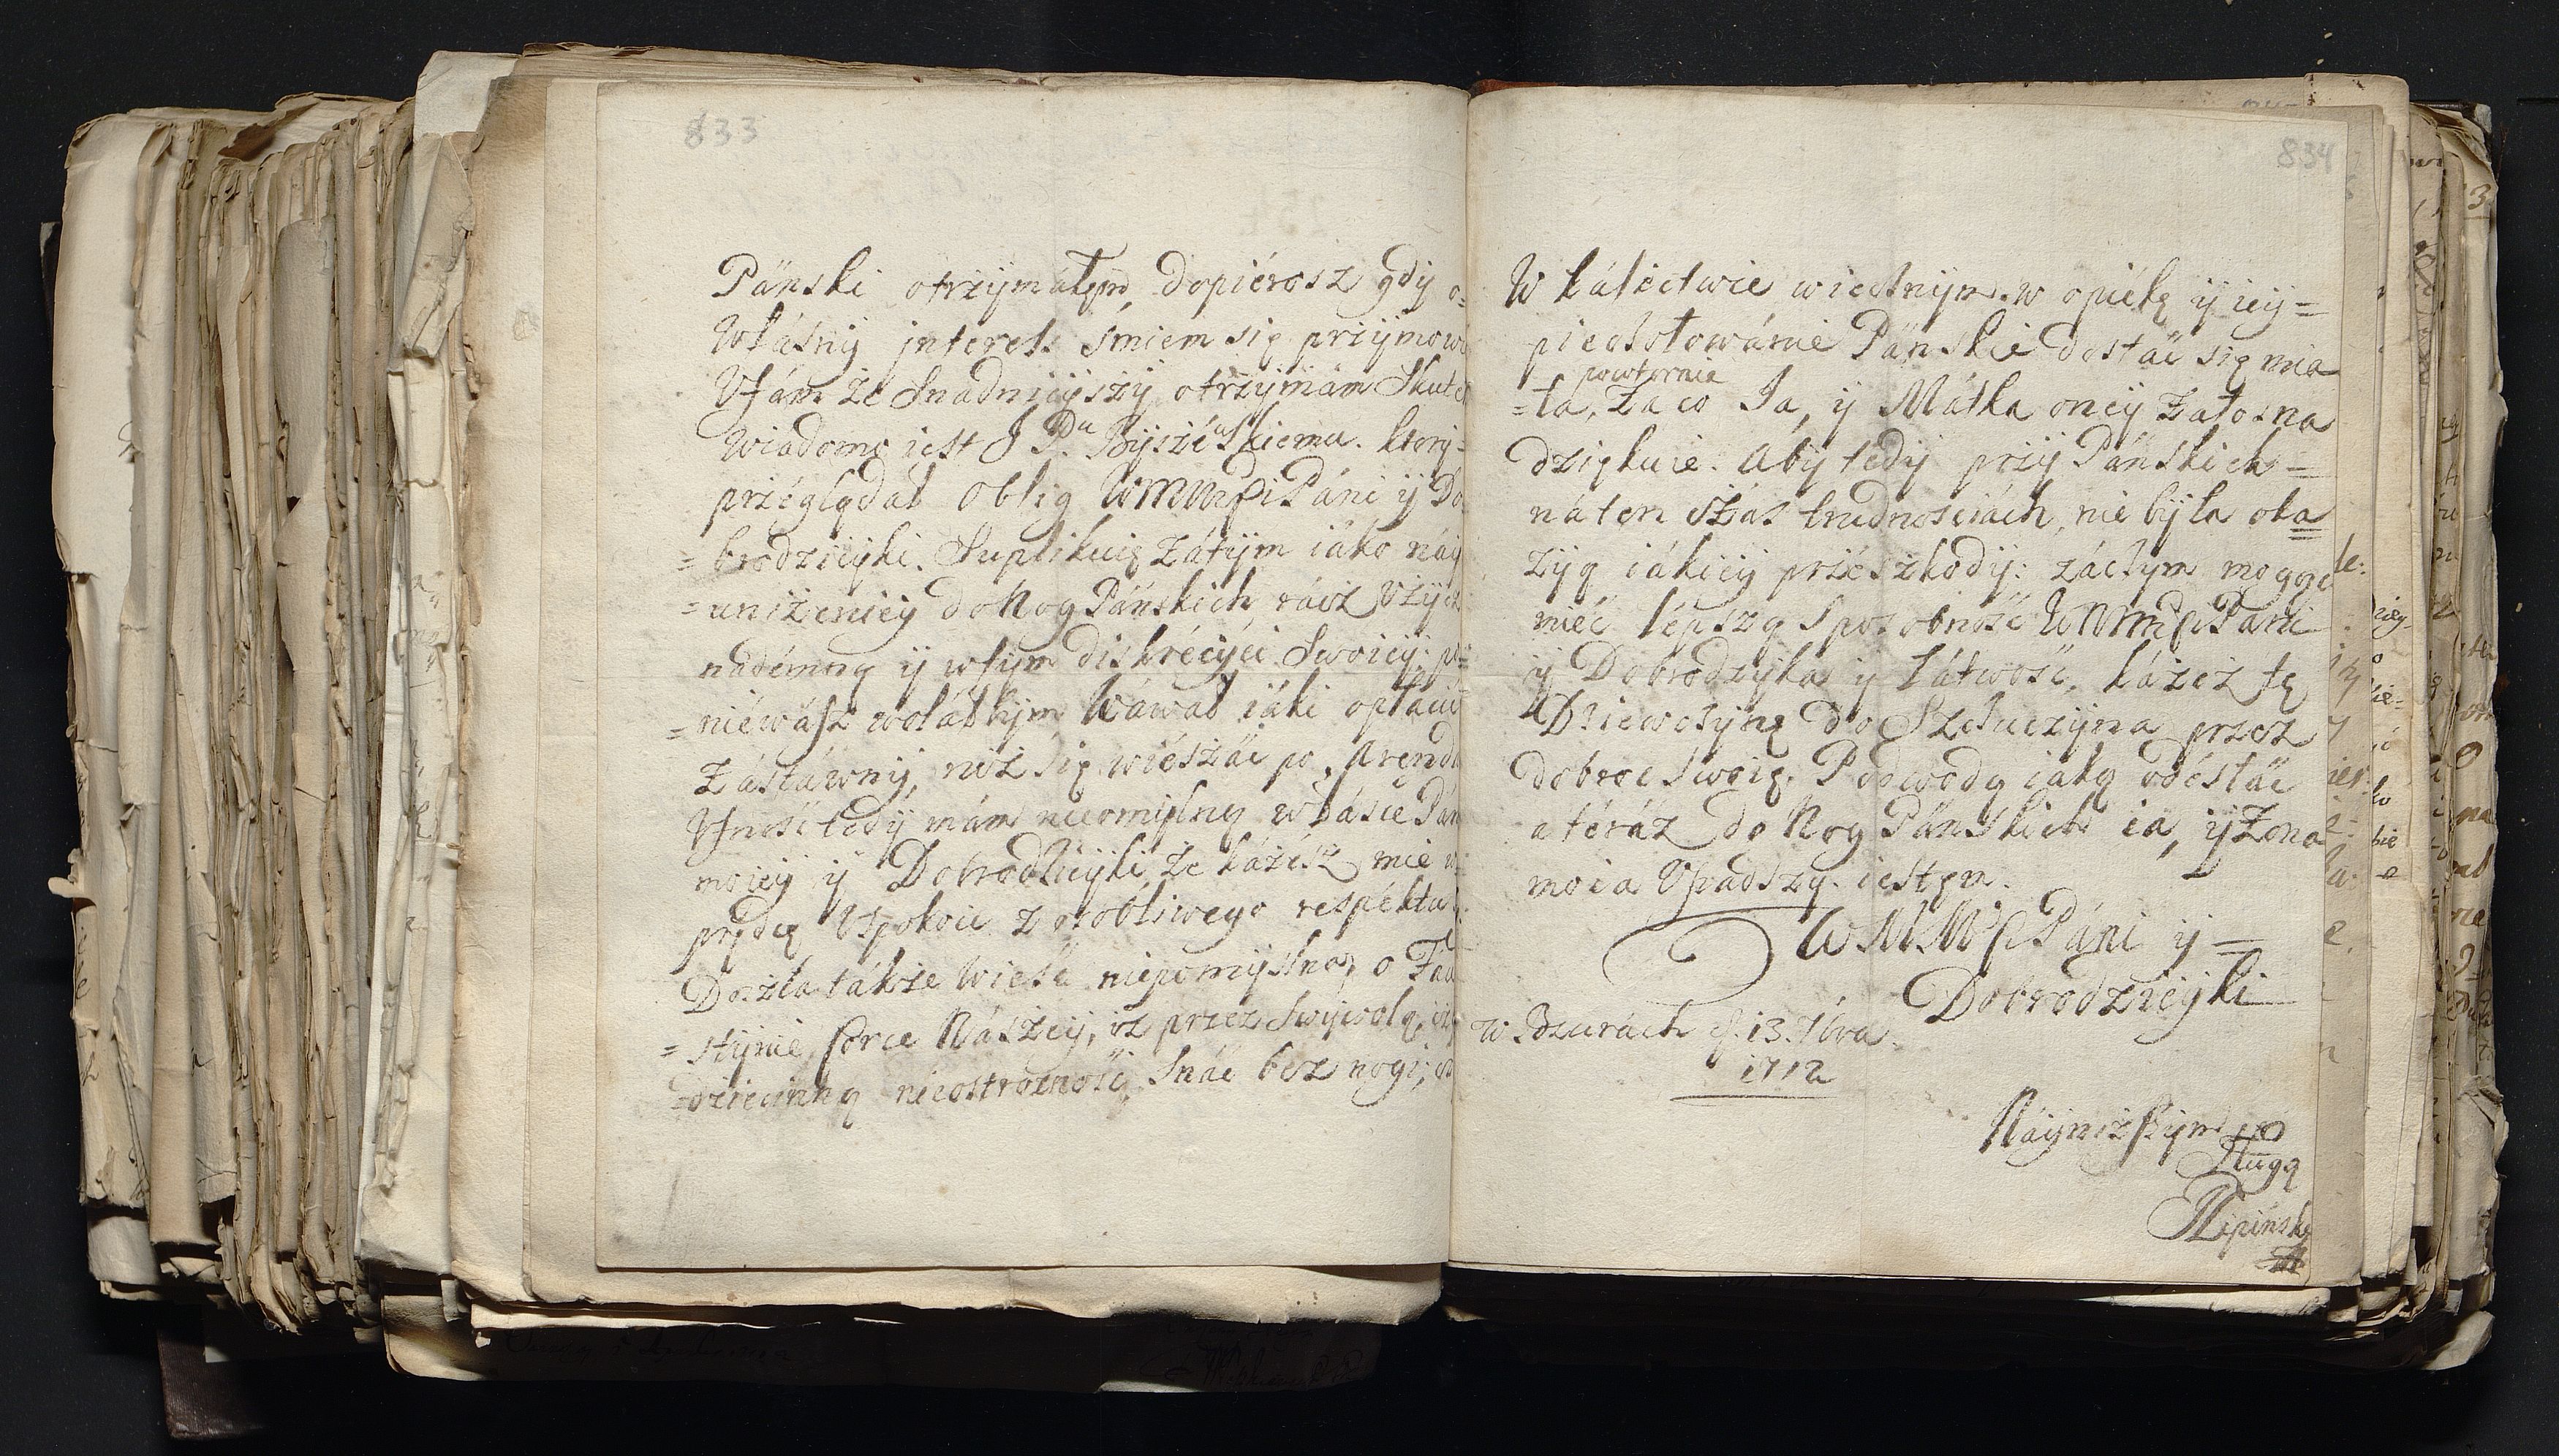 833
Pánski otrzymáłęm, dopiérosz gdy o=
Własny jnteres śmiem się przyimow
Ufám że Snadnieyszy otrzymám Skute
Wiadomo iest J Pu Byszé skiemu. ktory=
przéglądał Oblig WMMPi Páni y Do
=brodzieyki. Suplikuię zátym iáko náy
=uniżeniey do Nog Páńskich rácż Użyc
nádemną y w tym diskrécyéi Swoiey: po=
=niéwász wolałbym káwał iáki opłacić
Zástáwny, niż się wiészać po Arenda
Ufność tedy mám nieomylną w łásce Pán
moiey y Dobrodzieyki że każész mie w
prędce Uspokoic z osobliwego respéktu.
Doszła tákże Wieść niepomyslna, o Fáu
=stynie córce Nászey, iż przez Swywolą, czy
=dziecinną nieostrożność Snáć bez nogi, ż
834
W kálectwie wiecznym w opiékę y iey=
piélołowánie Páńskie dostáć się mia
powtornie
=ła, Zaco Ja, y Mátka oney żałosna
dziękuie. Aby tedy przy Páńskich=
náten czás trudnosciách, nie była oka
zyą iákiey przészkody: záczym mogąc
mieć lépszą sposobność WMMPi Páni
y Dobrodzyka y łátwość, każéż tę
Dziewczynę do Szczuczyna przez
dobroć swoię. Podwodą iaką odésłáć
a téráz do Nog Páńskich ia, y Zona
moia Upadszy. iestęm.
WMMPi Páni y=
Dobrodzieyki
w Bzurách d. 13. 7bra.
1712
Náyniższym
Sługą
Rlipinsky